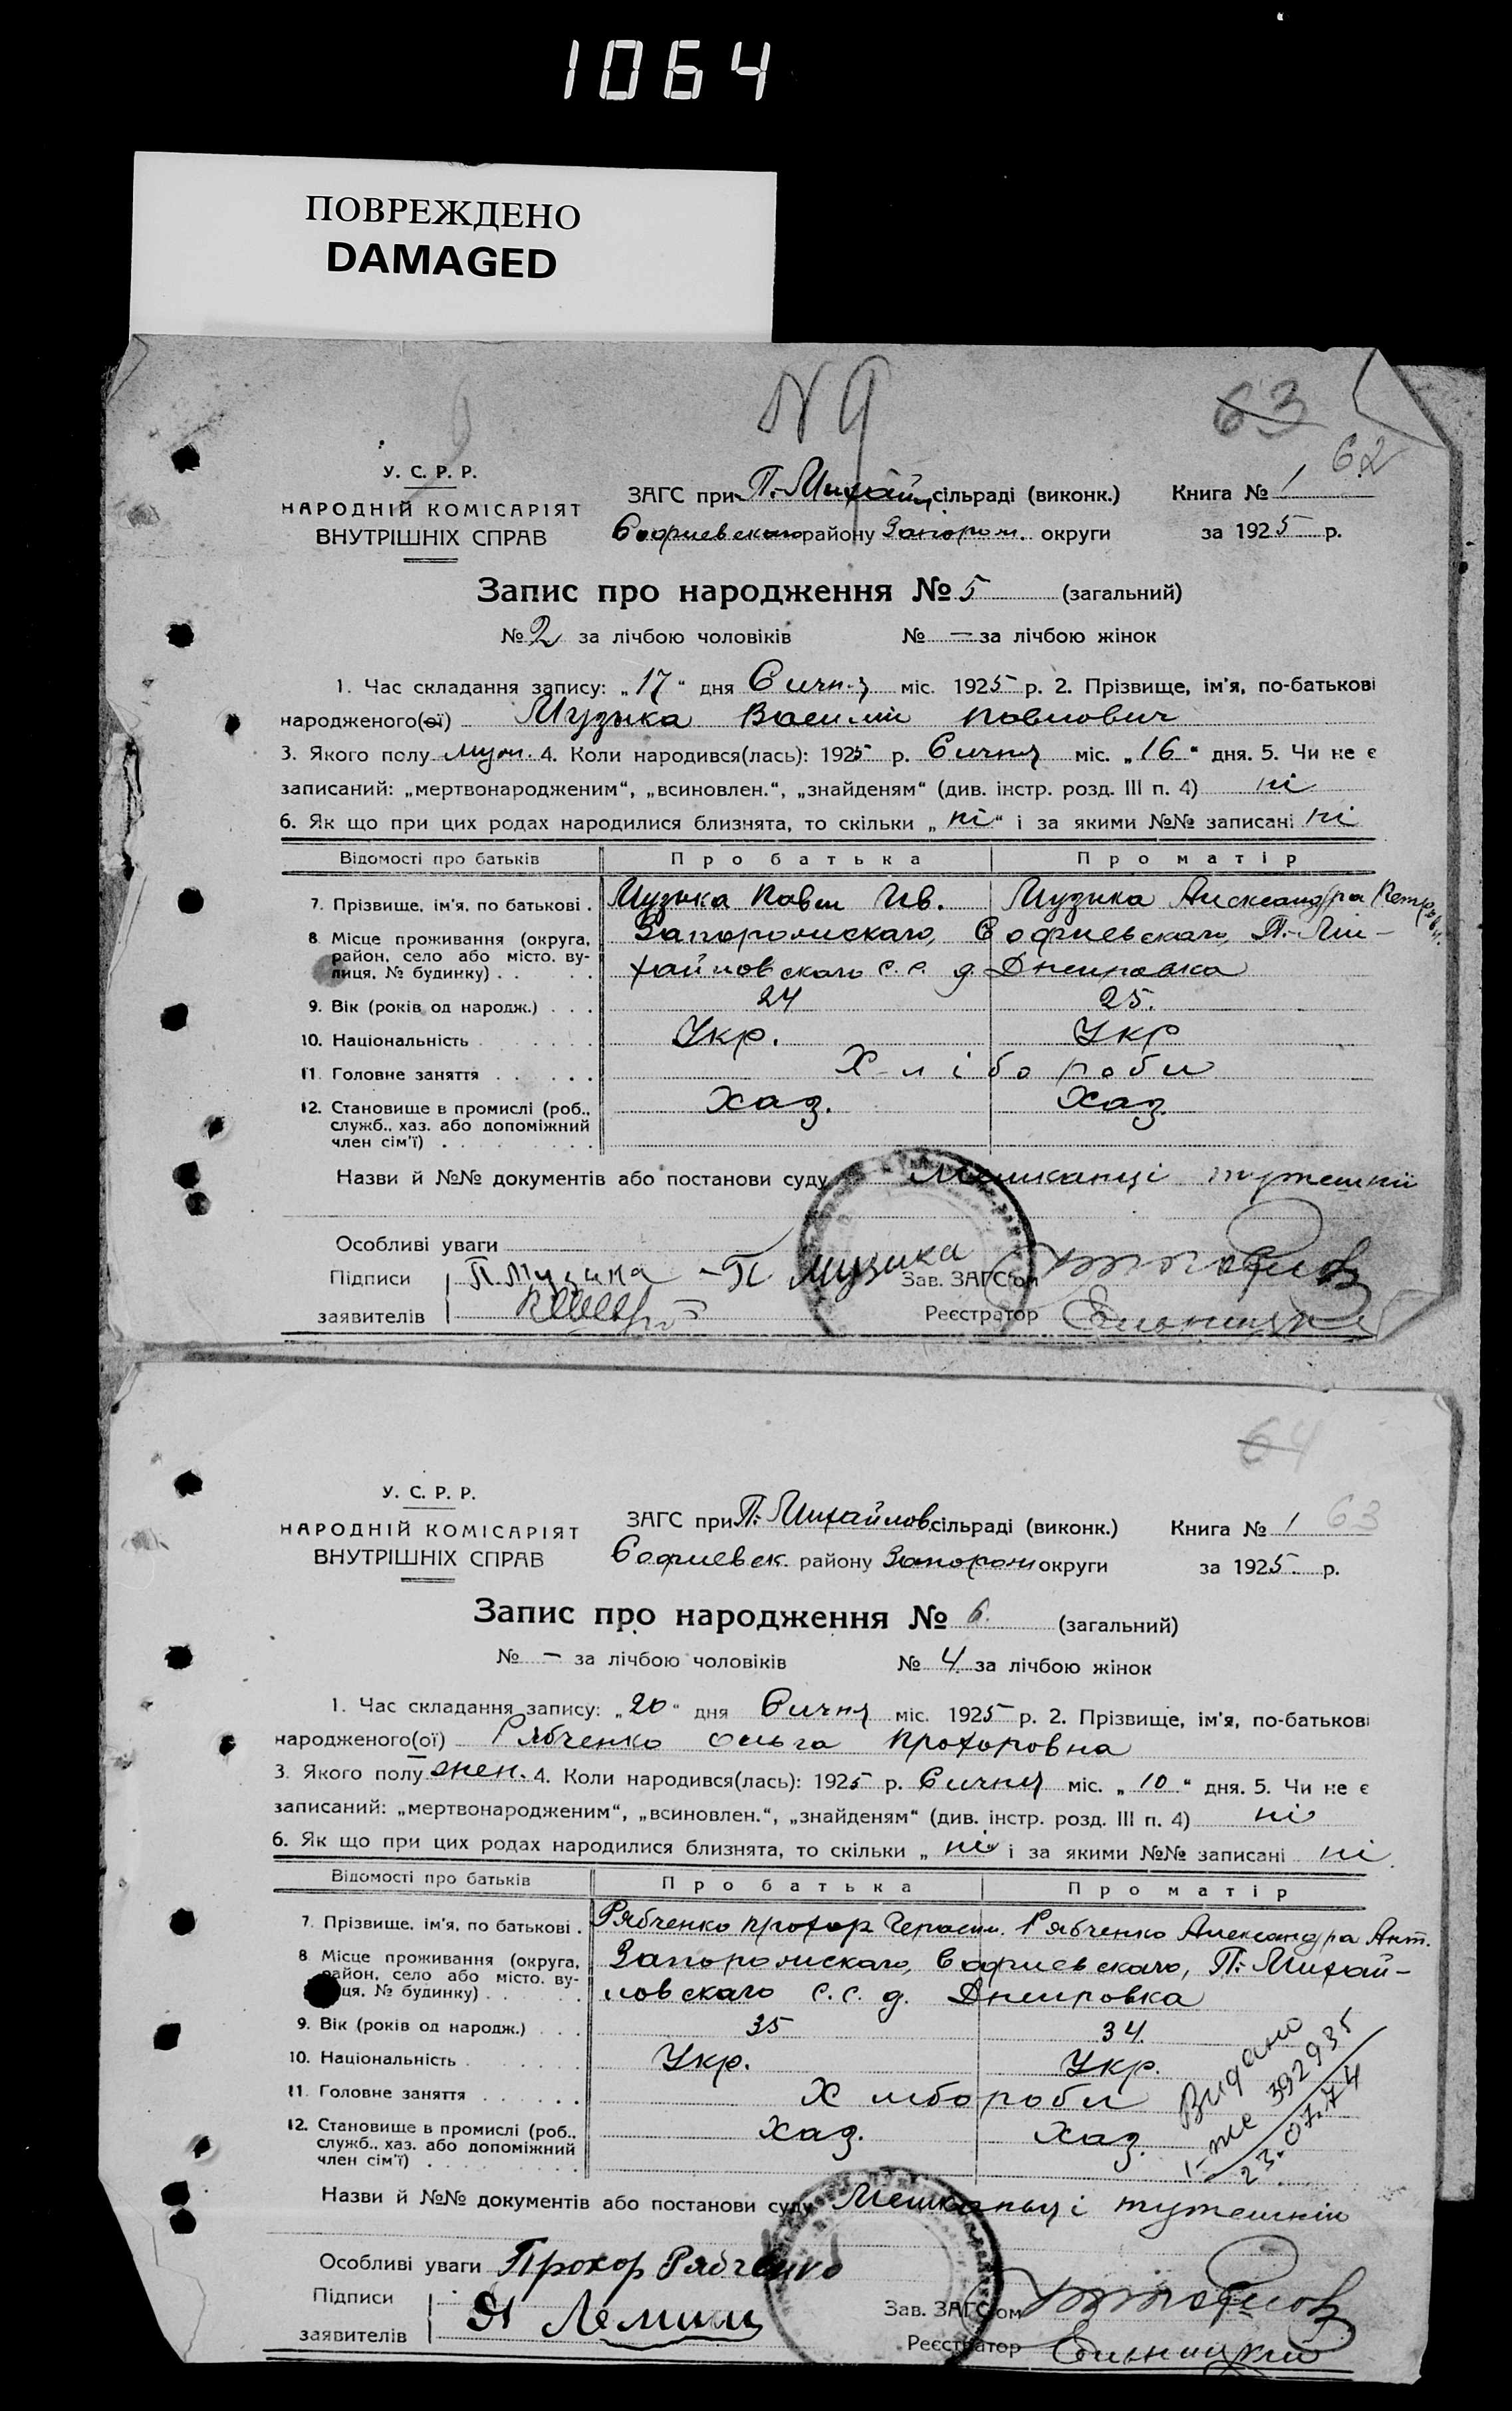 1064
ПОВРЕЖДЕНО
DAMAGED
N 9
63
62
У. С. Р. Р.
НАРОДНІЙ КОМІСАРІЯТ
ВНУТРІШНІХ СПРАВ
ЗАГС при П.-Михайл. сільраді (виконк.)
Софиевскаго району Запорож. округи
Книга № 1
за 1925 р.
Запис про народження № 5 (загальний)
№ 2 за лічбою чоловіків № — за лічбою жінок
1. Час складання запису: „17“ дня Січня міс. 1925 р. 2. Прізвище, ім'я, по-батькові
народженого(ої) Музыка Василий Павлович
3. Якого полу муж. 4. Коли народився(лась): 1925 р. Січня міс. „16“ дня. 5. Чи не є
записаний: „мертвонародженим“, „всиновлен.“, „знайденям“ (див. інстр. розд. III п. 4) ні
6. Як що при цих родах народилися близнята, то скільки „ні“ і за якими №№ записані ні
Відомості про батьків Про батька Про матір
7. Прізвище, ім'я, по батькові . Музыка Павел Ив. Музика Александра Петровн.
8. Місце проживання (округа, район, село або місто, вулиця, № будинку) . . Запорожскаго, Софиевскаго, П.-Ми-
хайловскаго с.с. д. Днепровка
9. Вік (років од народж.) . . . 24 25.
10. Національність Укр. Укр
11. Головне заняття . . . . . Хлібороби
12. Становище в промислі (роб., Хаз. Хаз.
служб., хаз. або допоміжний
член сім'ї) .
Назви й №№ документів або постанови суду Мешканці тутешнії
Особливі уваги
Підписи П. Музика - П. Музика Зав. ЗАГС'ом
заявителів Реєстратор
64
63
У. С. Р. Р.
НАРОДНІЙ КОМІСАРІЯТ
ВНУТРІШНІХ СПРАВ
ЗАГС при П.-Михайлов. сільраді (виконк.)
Софиевск. району Запорож округи
Книга № 1
за 1925 р.
Запис про народження № 6. (загальний)
№ — за лічбою чоловіків № 4. за лічбою жінок
1. Час складання запису: „20“ дня Січня міс. 1925 р. 2. Прізвище, ім'я, по-батькові
народженого(ої) Рябченко Ольга Прохоровна
3. Якого полу жен. 4. Коли народився(лась): 1925 р. Січня міс. „10“ дня. 5. Чи не є
записаний: „мертвонародженим“, „всиновлен.“, „знайденям“ (див. інстр. розд. III п. 4) ні
6. Як що при цих родах народилися близнята, то скільки „ні“ і за якими №№ записані ні.
Відомості про батьків Про батька Про матір
7. Прізвище, ім'я, по батькові . Рябченко Прохор Герасим. Рябченко Александра Ант.
8. Місце проживання (округа, район, село або місто, вулиця, № будинку) . . Запорожскаго, Софиевскаго, П.-Михай-
ловскаго с.с. д. Днепровка
9. Вік (років од народж.) . . . 35 34.
10. Національність . Укр. Укр.
11. Головне заняття . . . . . Хлібороби
12. Становище в промислі (роб., Хаз. Хаз.
служб., хаз. або допоміжний
член сім'ї) .
Видано
1-же 392935
23.07.74
Назви й №№ документів або постанови суду Мешканьці тутешнії
Особливі уваги Прохор Рябченко
Підписи Зав. ЗАГС'ом
заявителів Реєстратор